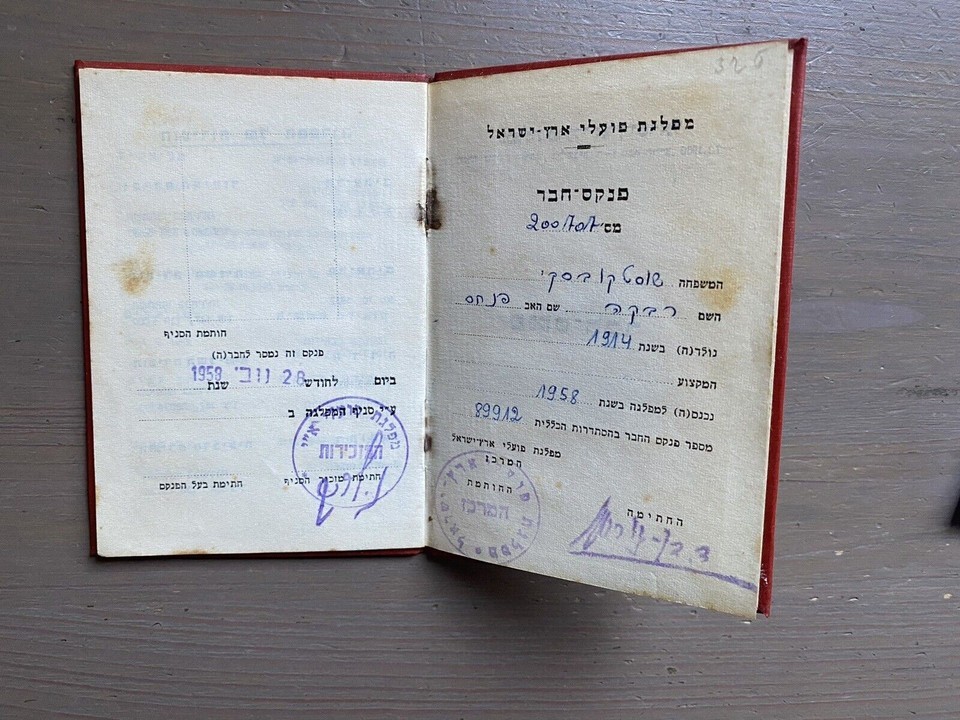 326
מפלגת פועלי ארץ-ישראל
פנקס-חבר
מס' 200707
המשפחה שוסטקובסקי
השם רבקה שם האב פנחס
נולד(ה) בשנת 1914
המקצוע
נכנס(ה) למפלגה בשנת 1958
מספר פנקס החבר בהסתדרות הכללית 89912
מפלגת פועלי ארץ-ישראל
המרכז
החותמת
החתימה
המרכז
חותמת הסניף
פנקס זה נמסר לחבר(ה)
ביום 28 לחודש נוב' שנת 1958
ע"י סניף המפלגה ב
המזכירות
חתימת מזכיר הסניף חתימת בעל הפנקס